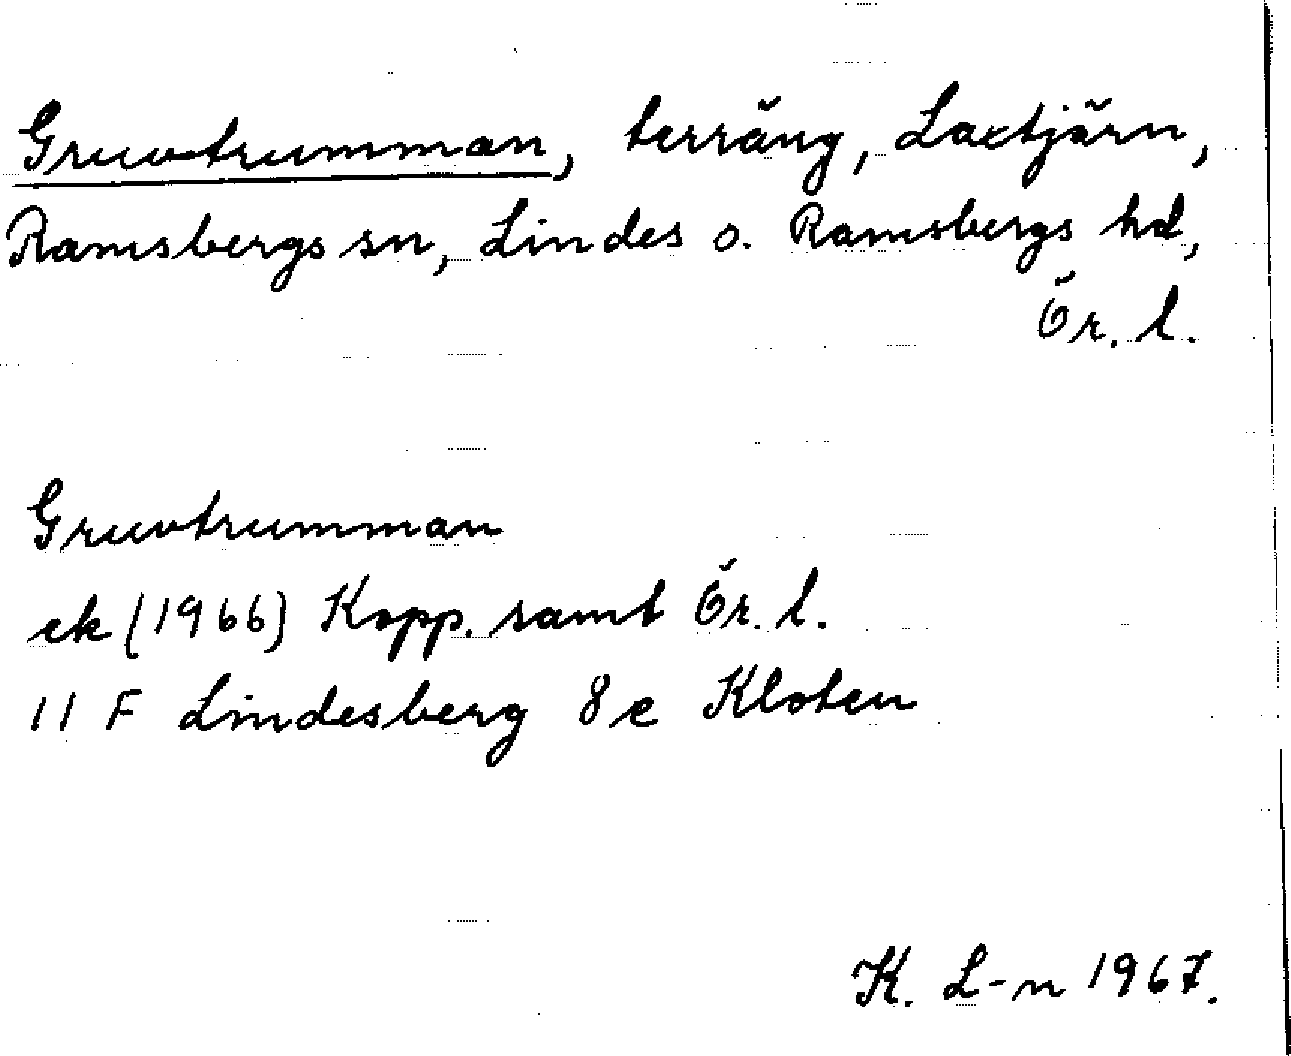 Gruvtrumman, terräng, Laxtjärn,
Ramsbergs sn, Lindes o. Ramsbergs hd,
Ör. l.
Gruvtrumman
ek (1966) Kopp. samt Ör. l.
11 F Lindesberg 8 e Kloten
K. L-n 1967.